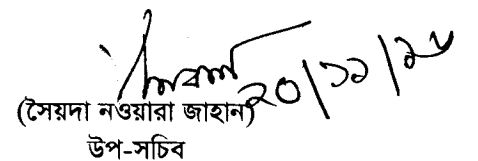 ২০/১১/২৫
(সৈয়দা নওয়ারা জাহান)
উপ-সচিব